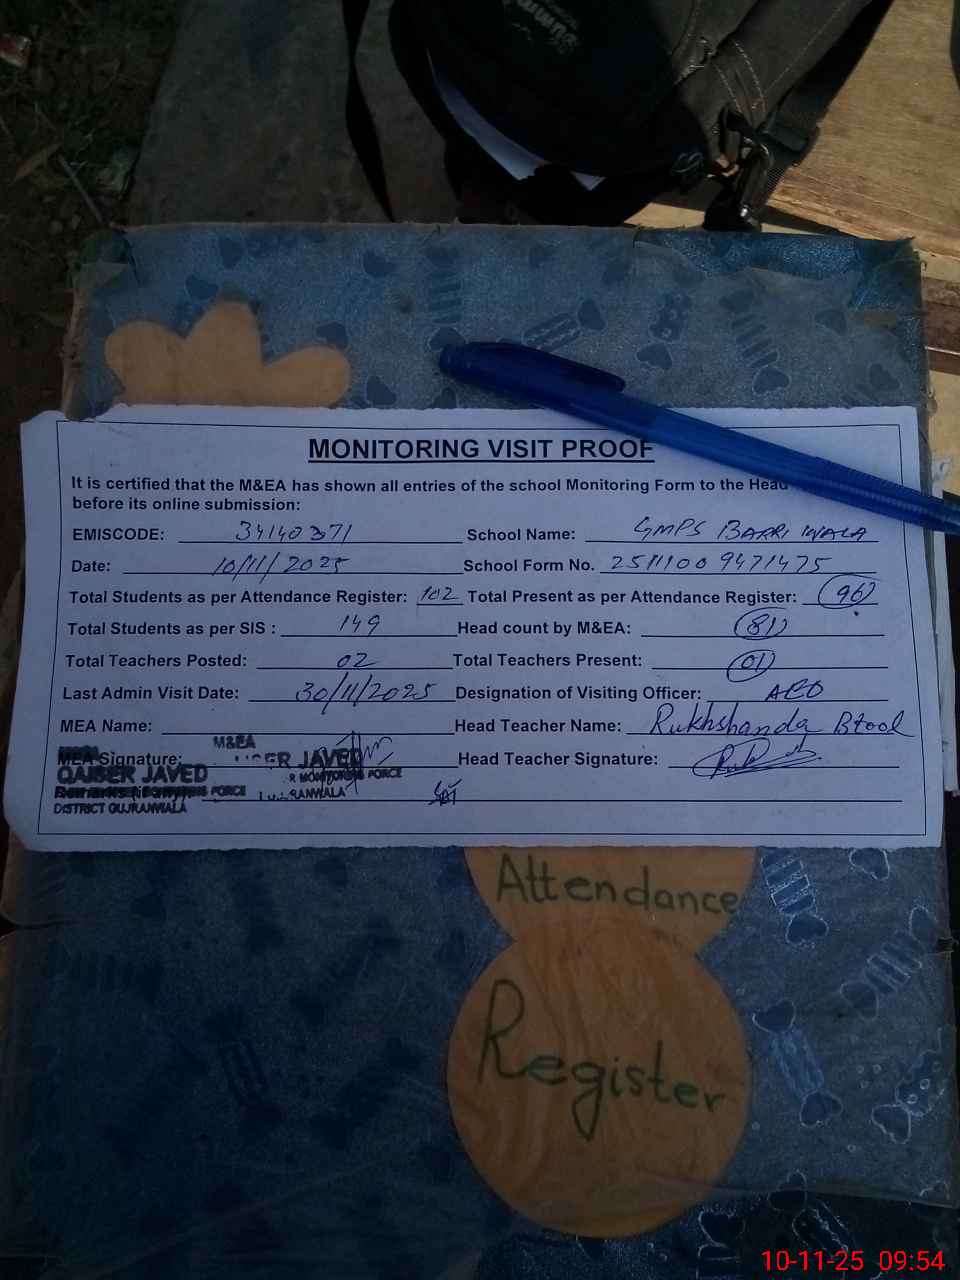 MONITORING VISIT PROOF
It is certified that the M&EA has shown all entries of the school Monitoring Form to the Head
before its online submission:
EMISCODE: 34140371 School Name: GMPS BARRI WALA
Date: 10/11/2025 School Form No. 2511100 9471475
Total Students as per Attendance Register: 102 Total Present as per Attendance Register: 96
Total Students as per SIS : 149 Head count by M&EA: 81
Total Teachers Posted: 02 Total Teachers Present: 01
Last Admin Visit Date: 30/11/2025 Designation of Visiting Officer: AEO
MEA Name: Head Teacher Name: Rukhshanda Btool
M&EA
MEA Signature: Head Teacher Signature:
QAISER JAVED
DISTRICT GUJRANWALA
Attendance
Register
10-11-25 09:54